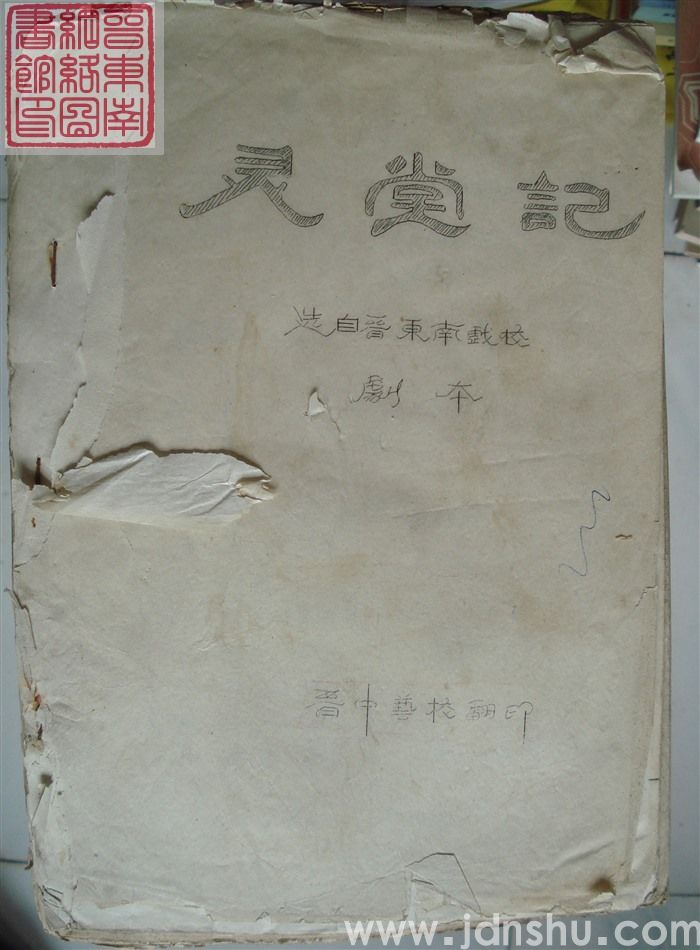 晋東南
網絡圖
書館印
灵堂記
选自晋東南戯校
劇本
晋中藝校翻印
www.jdnshu.com